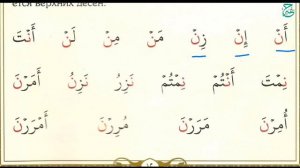 ется верхних десен.
أَنْ إِنْ زِنْ مَنْ مِنْ لَنْ أَنْتَ
نِمْتَ أَنْتُمْ نِمْتُمْ نَزِرُ نَزِنُ أَمَرْنَ
أُمِرْنَ مَرَرْنَ مُرِرْنَ أَمْرَرْنَ
١٢